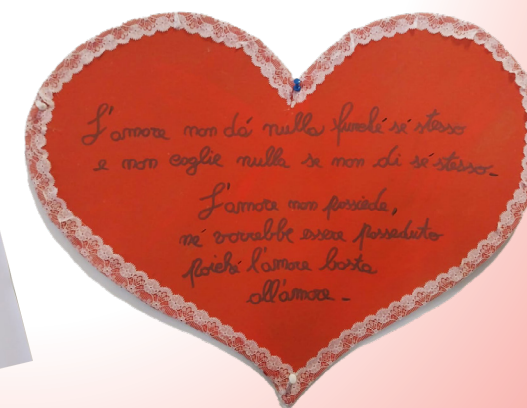 L'amore non dá nulla fuorché sé stesso
e non coglie nulla se non di sé stesso_
L'amore non possiede,
né vorrebbe essere posseduto
poiché l'amore basta
all'amore_